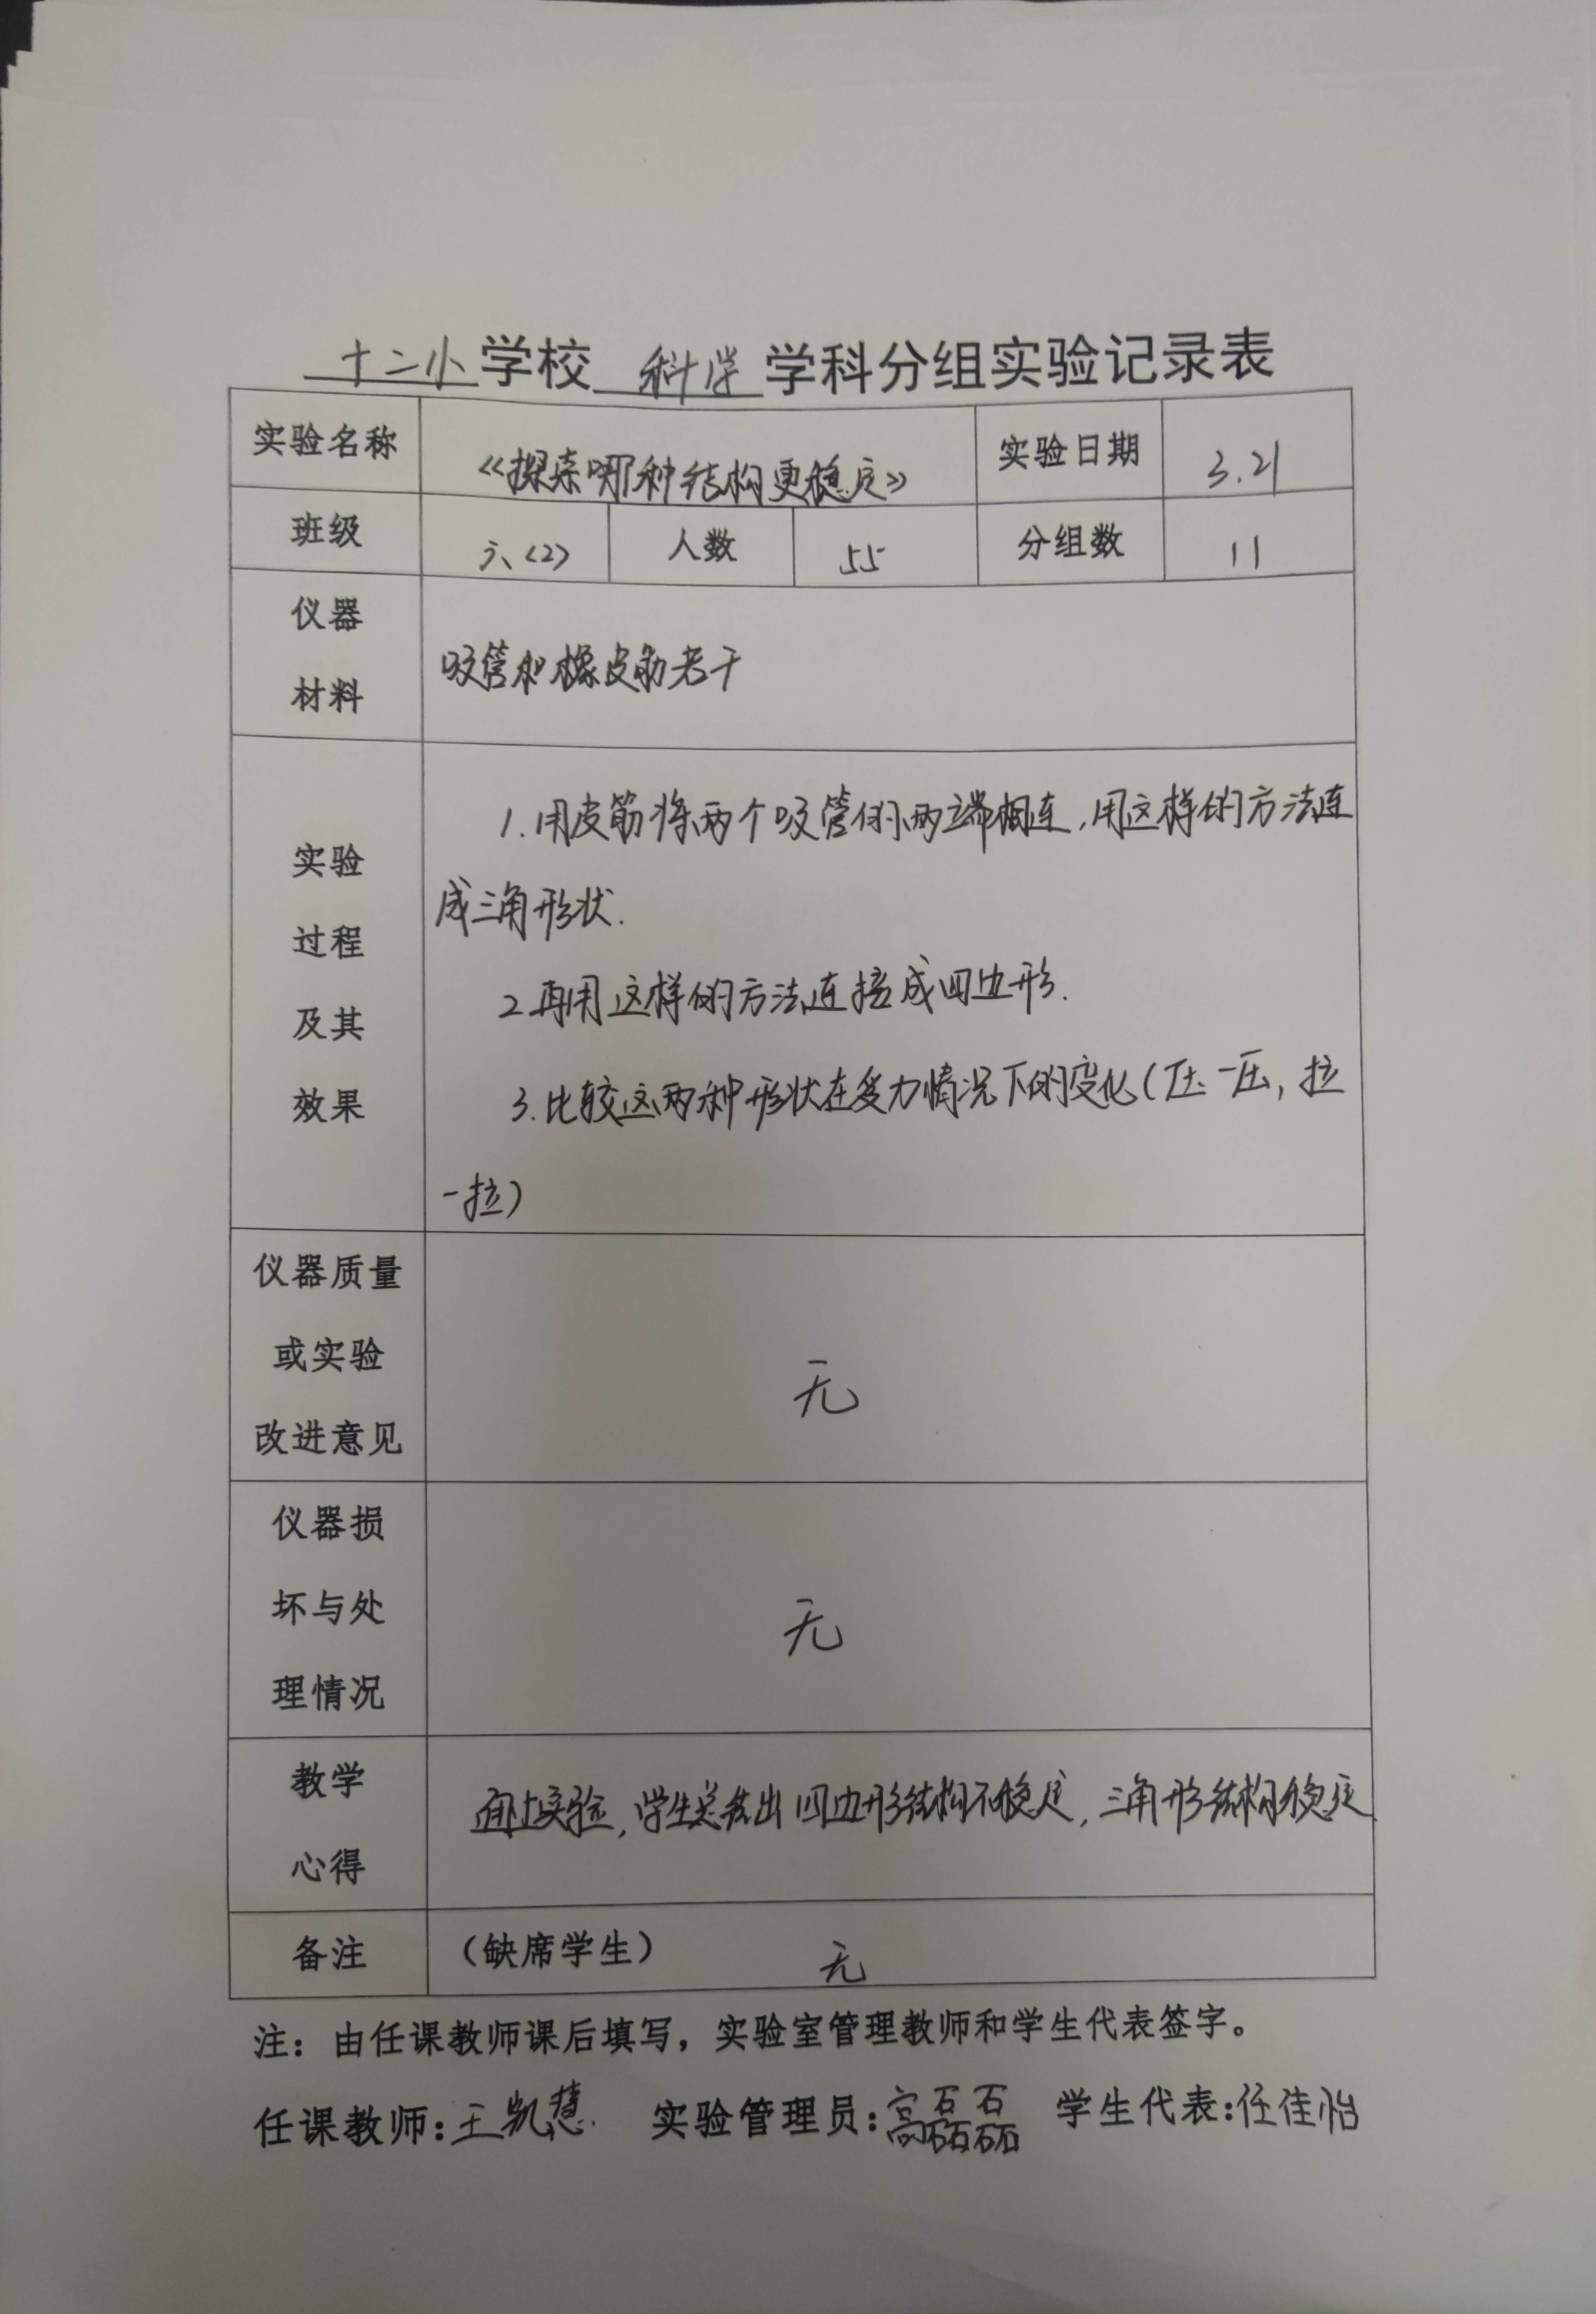 十二小学校 科学 学科分组实验记录表
实验名称 《探索哪种结构更稳定》 实验日期 3.21
班级 六(2) 人数 55 分组数 11
仪器
材料
吸管和橡皮筋若干
实验
过程
及其
效果
1.用皮筋将两个吸管的两端相连,用这样的方法连
成三角形状.
2再用这样的方法连接成四边形.
3.比较这两种形状在受力情况下的变化(压一压,拉
一拉)
仪器质量
或实验
改进意见
无
仪器损
坏与处
理情况
无
教学
心得
通过实验,学生总结出四边形结构不稳定,三角形结构稳定
备注 (缺席学生) 无
注：由任课教师课后填写，实验室管理教师和学生代表签字。
任课教师:王凯慧. 实验管理员:高磊磊 学生代表:任佳怡